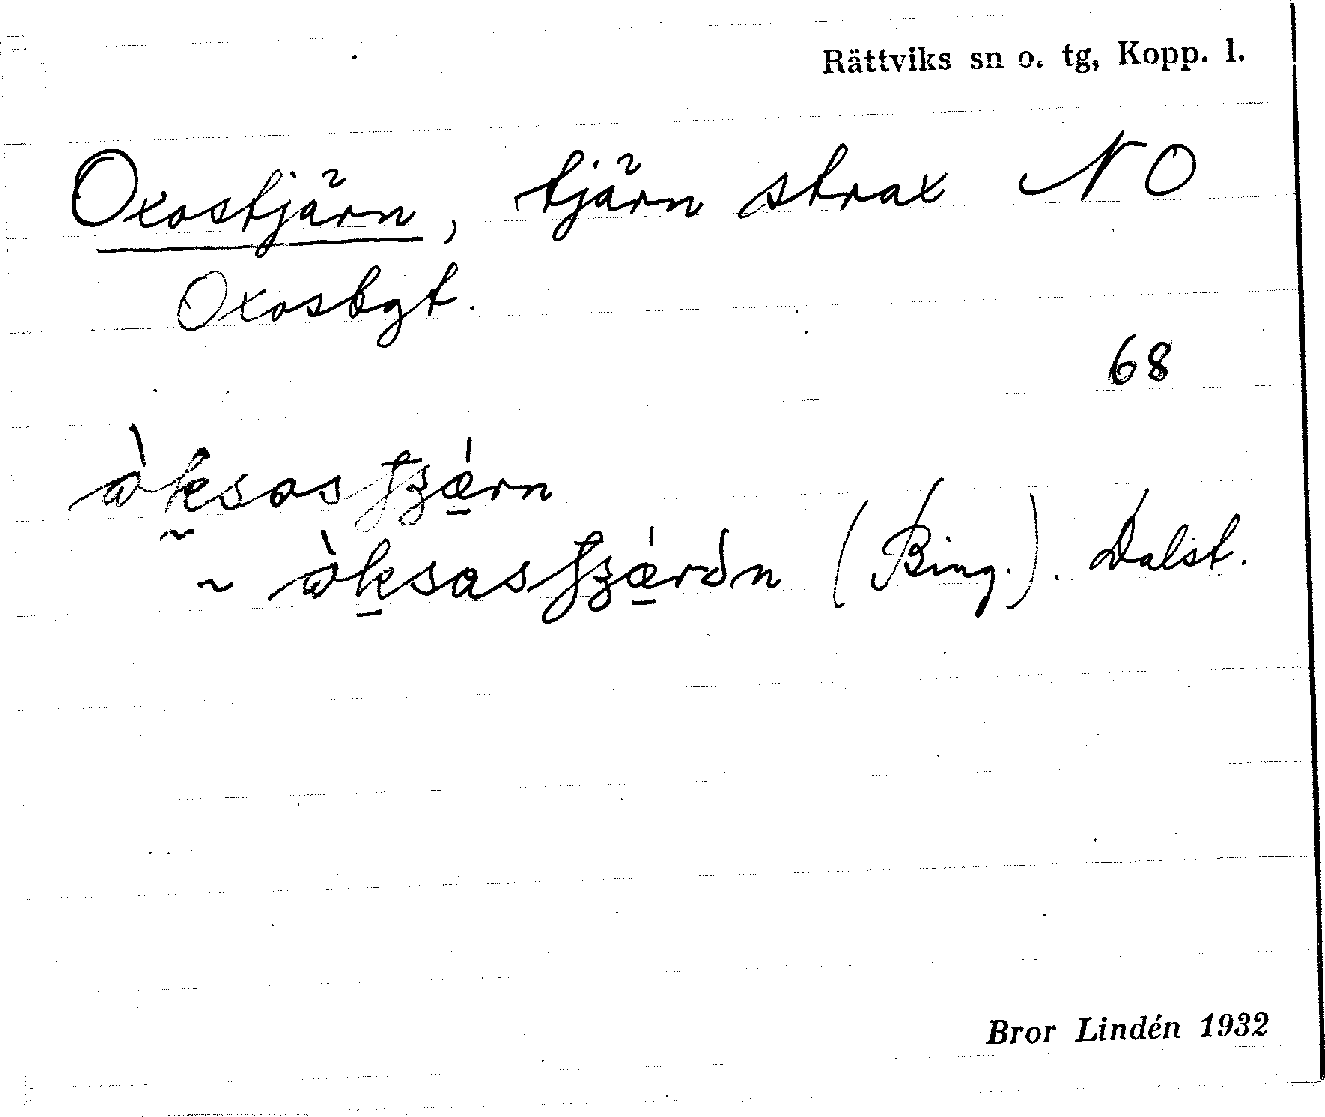 Rättviks sn o. tg, Kopp. l.
Oxostjärn, tjärn strax NO
Oxosbgt.
68
ὰksosʃʒǽrn
~ ὰksasʃʒǽrön (Bing.). Dalst.
Bror Lindén 1932